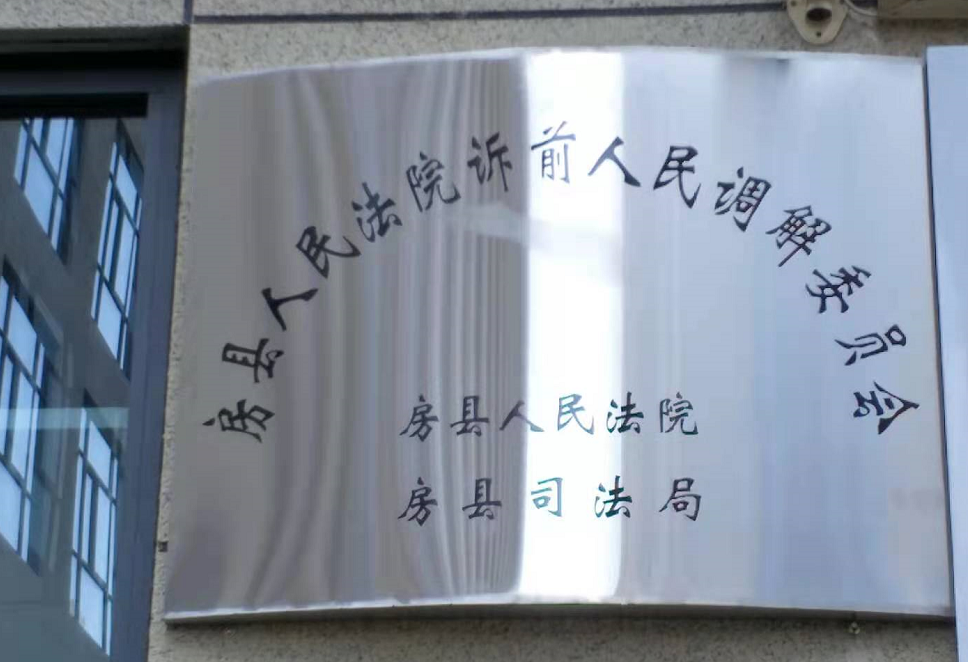 房县人民法院诉前人民调解委员会
房县人民法院
房县司法局